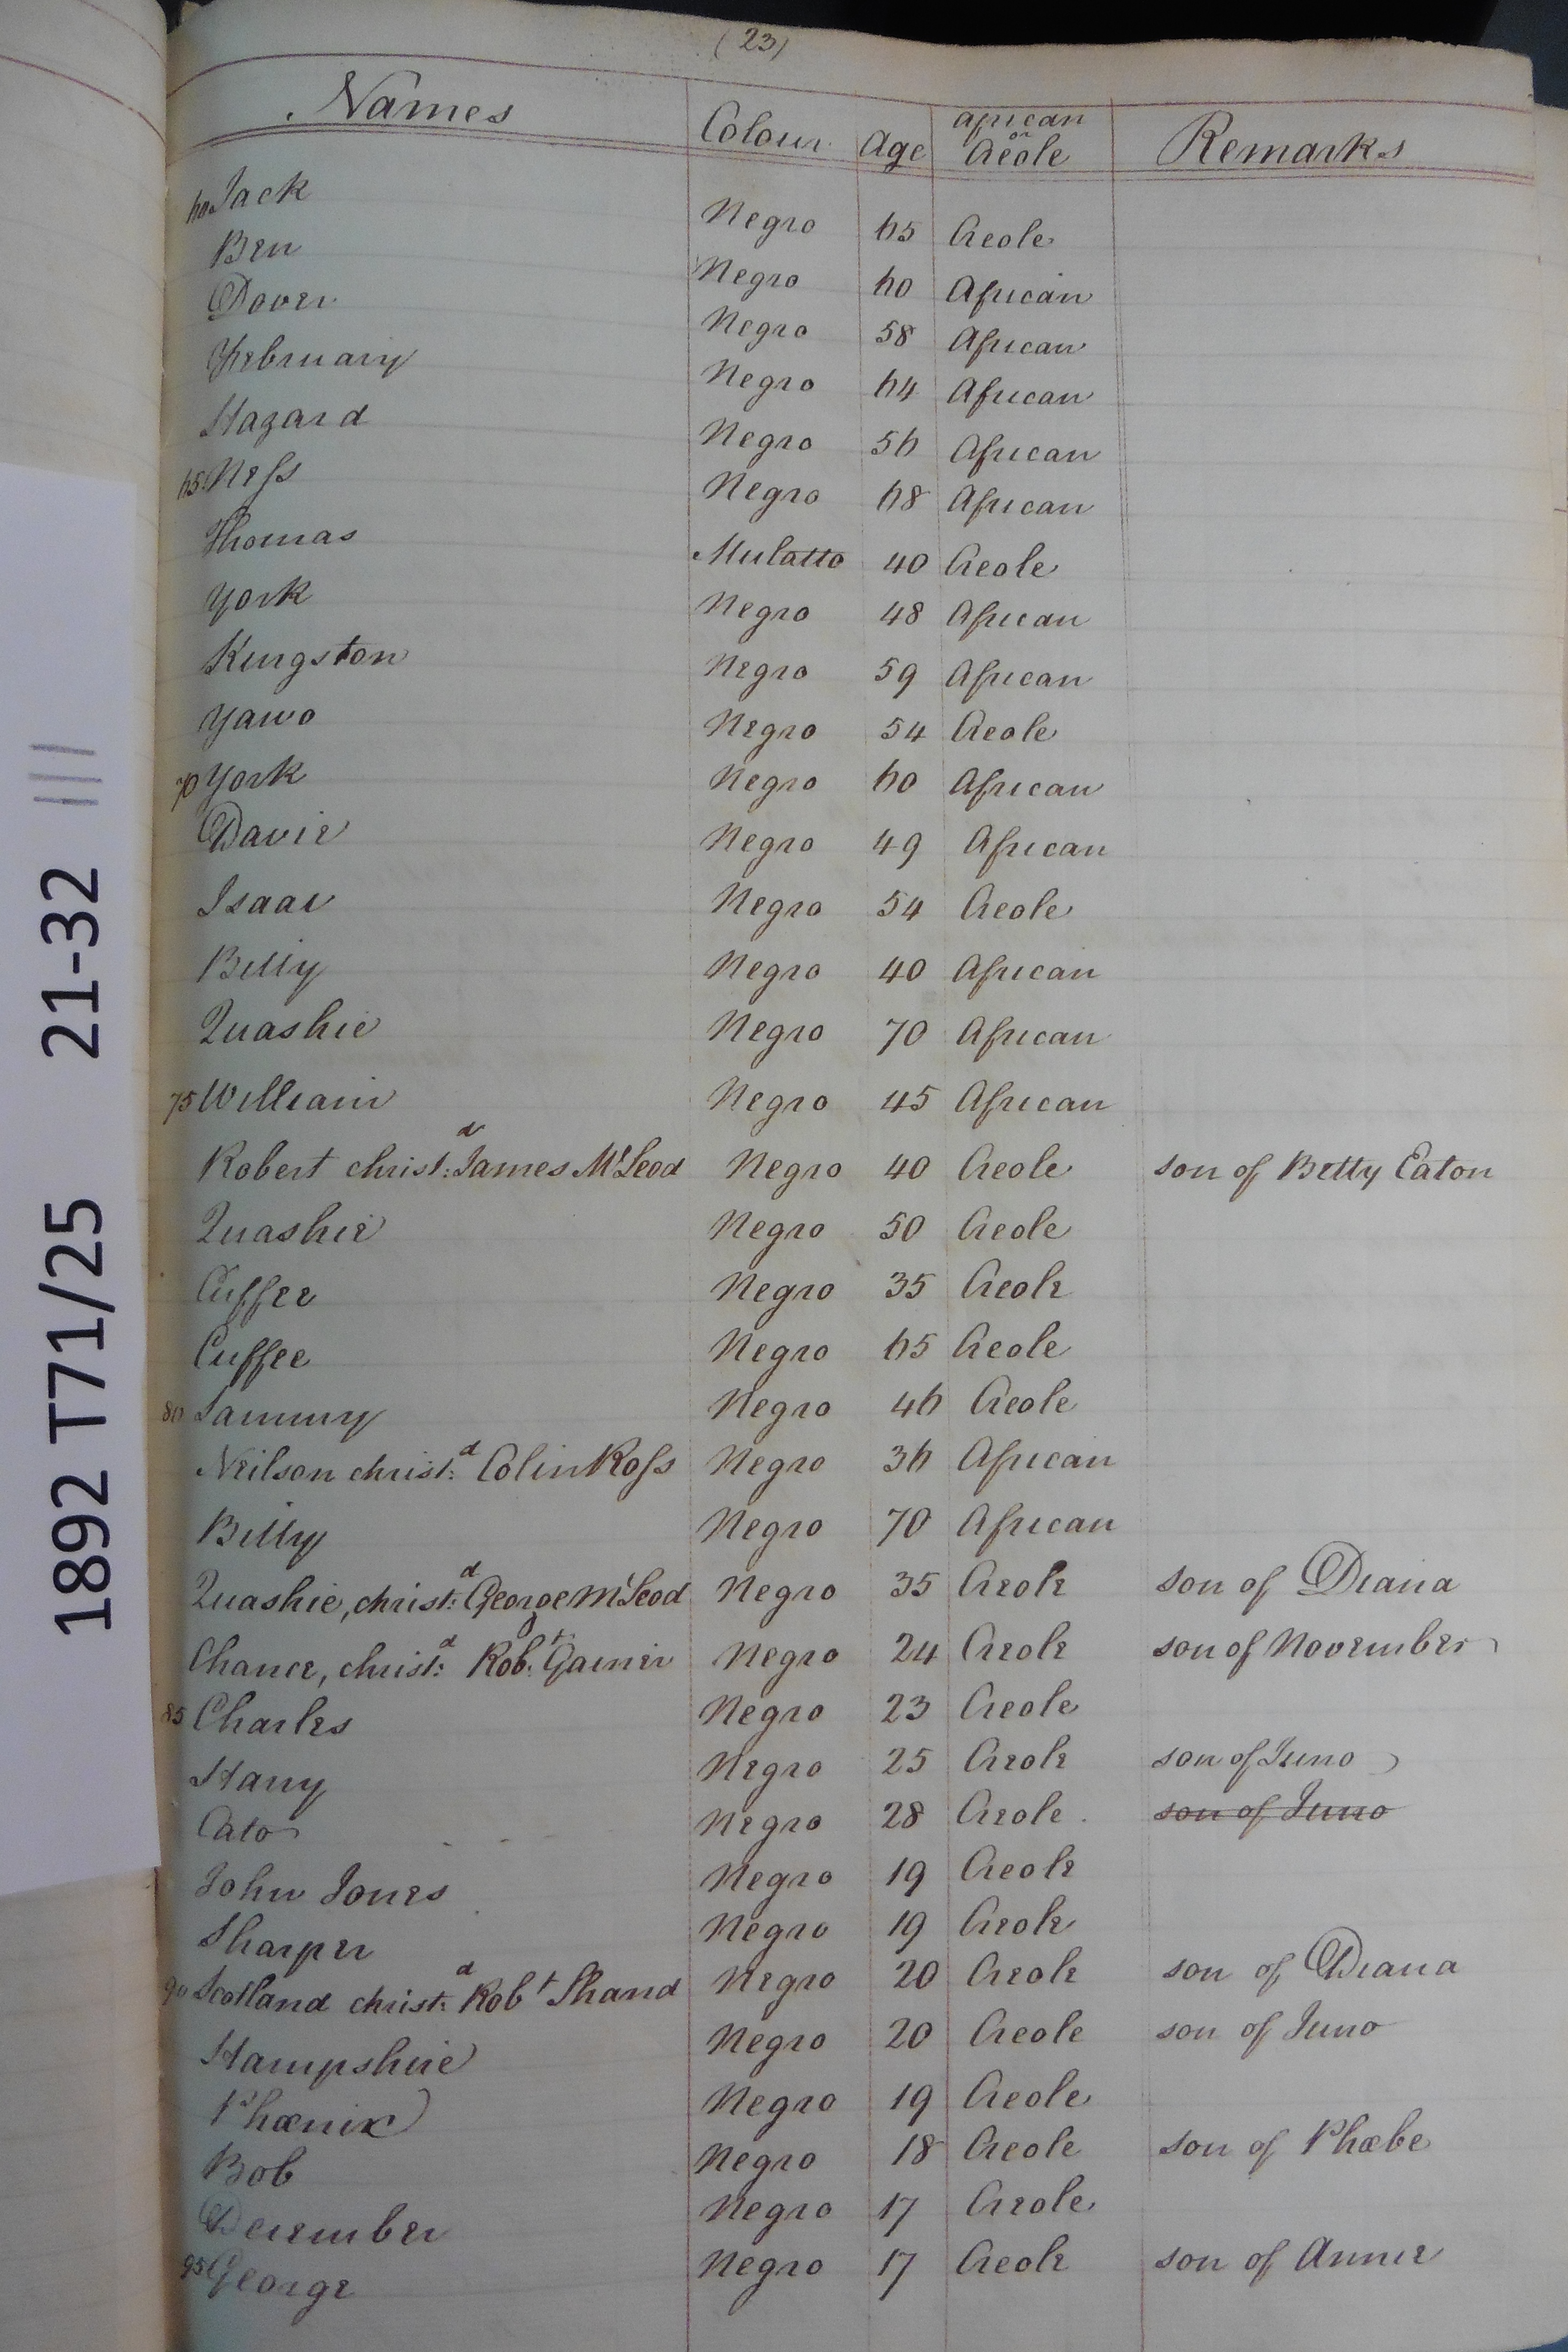 (23)
Names Colour Age African or Creole Remarks
60 Jack Negro 65 Creole
Ben Negro 60 African
Dover Negro 58 African
February Negro 64 African
Hazard Negro 56 African
65 Ness Negro 68 African
Thomas Mulatto 40 Creole
York Negro 48 African
Kingston Negro 59 African
Yawo Negro 54 Creole
70 York Negro 60 African
Davie Negro 49 African
Isaac Negro 54 Creole
Billy Negro 40 African
Quashie Negro 70 African
75 William Negro 45 African
Robert christ:d James McLeod Negro 40 Creole son of Betty Eaton
Quashie Negro 50 Creole
Cuffee Negro 35 Creole
Cuffee Negro 65 Creole
80 Sammy Negro 46 Creole
Neilson christ:d Colin Ross Negro 36 African
Billy Negro 70 African
Quashie, christ:d George McLeod Negro 35 Creole son of Diana
Chance, christ:d Rob:t Garner Negro 24 Creole son of November
85 Charles Negro 23 Creole
Harry Negro 25 Creole son of Juno
Cato Negro 28 Creole son of Juno
John Jones Negro 19 Creole
Sharper Negro 19 Creole
90 Scotland christ:d Robt Shand Negro 20 Creole son of Diana
Hampshire Negro 20 Creole son of Juno
Phœnix Negro 19 Creole
Bob Negro 18 Creole son of Phœbe
December Negro 17 Creole
95 George Negro 17 Creole son of Annie
1892 T71/25 21-32 ///